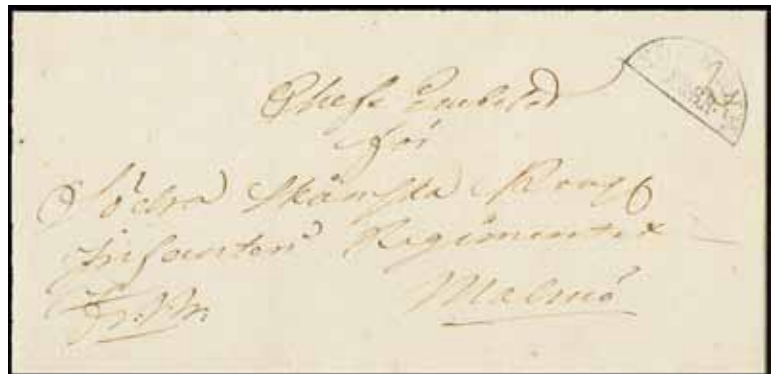 Chefs Embetet
för
Södra Skånska Kongl
Infanteri Regimentet
Malmö